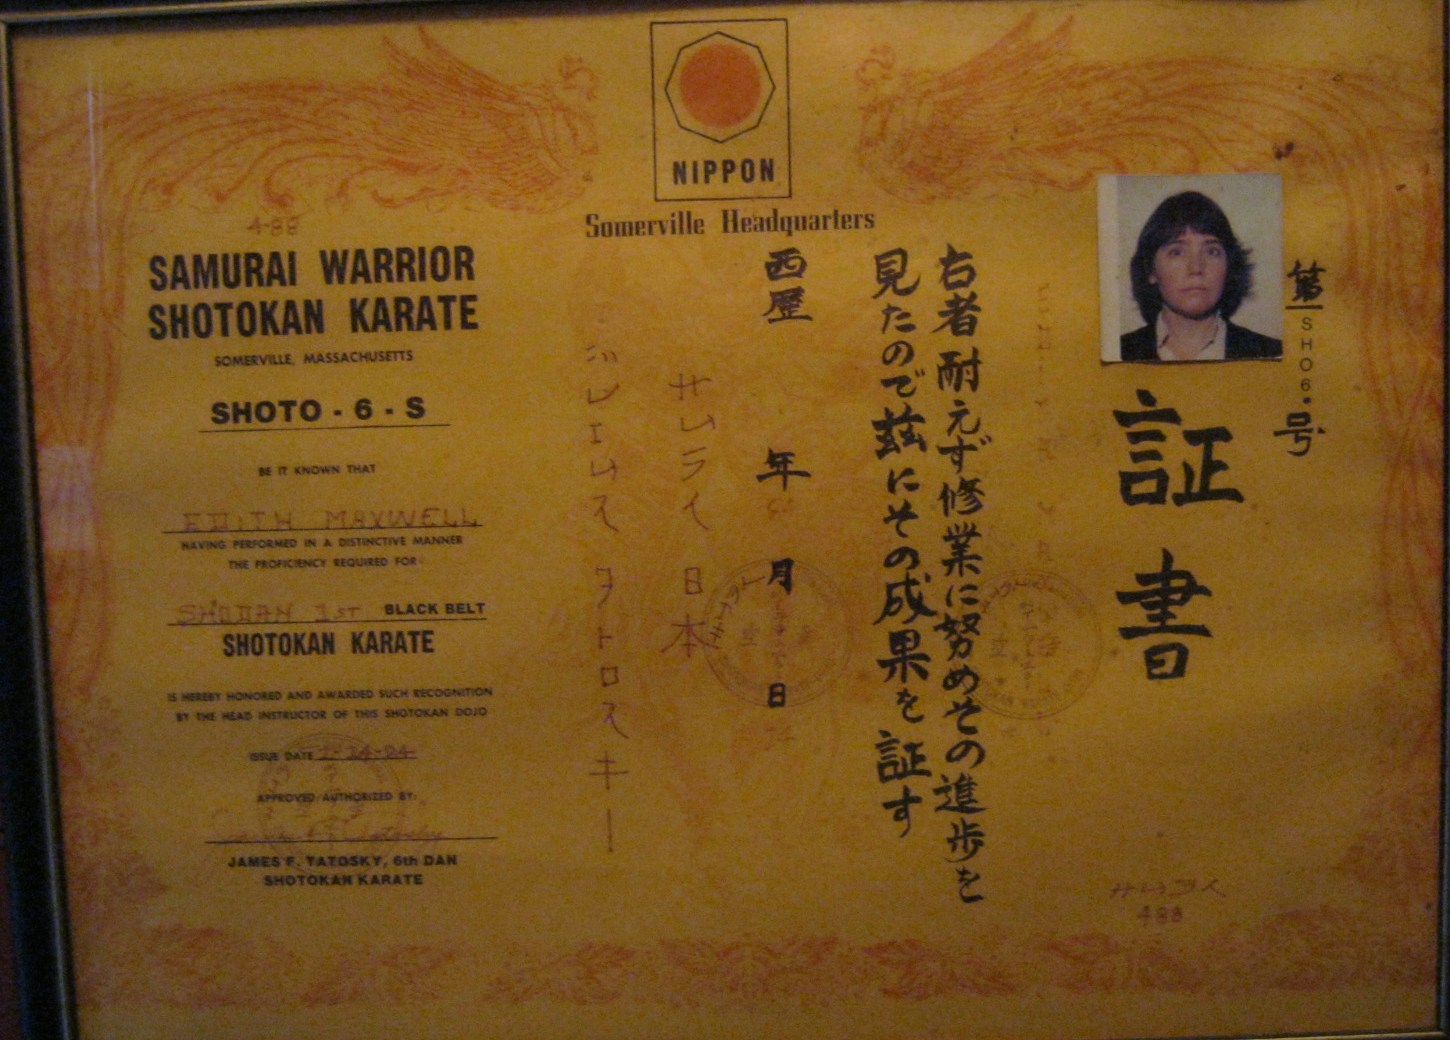 NIPPON
Somerville Headquarters
4-88
SAMURAI WARRIOR
SHOTOKAN KARATE
SOMERVILLE, MASSACHUSETTS
SHOTO - 6 - S
BE IT KNOWN THAT
EDITH MAXWELL
HAVING PERFORMED IN A DISTINCTIVE MANNER
THE PROFICIENCY REQUIRED FOR
SHODAN 1ST BLACK BELT
SHOTOKAN KARATE
IS HEREBY HONORED AND AWARDED SUCH RECOGNITION
BY THE HEAD INSTRUCTOR OF THIS SHOTOKAN DOJO
ISSUE DATE
APPROVED/AUTHORIZED BY:
JAMES F. TATOSKY, 6th DAN
SHOTOKAN KARATE
第SHO6.号
証書
右者耐えず修業に努めその進歩を
見たので茲にその成果を証す
西歴 年 月 日
サムライ 日本
488